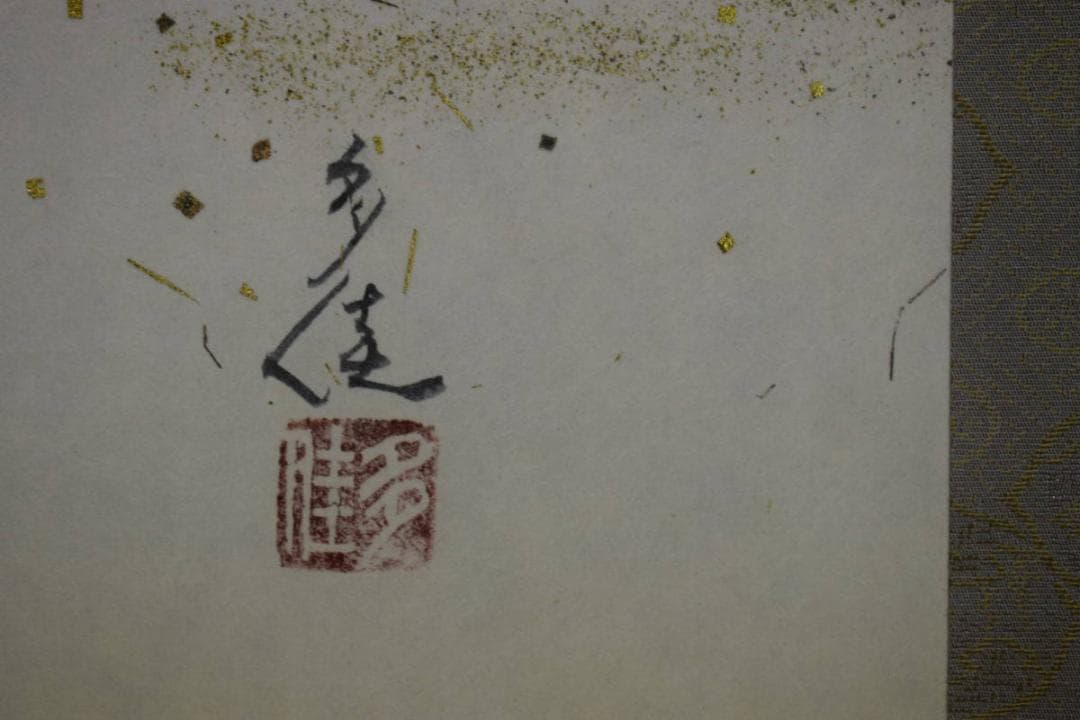 多佳
多佳